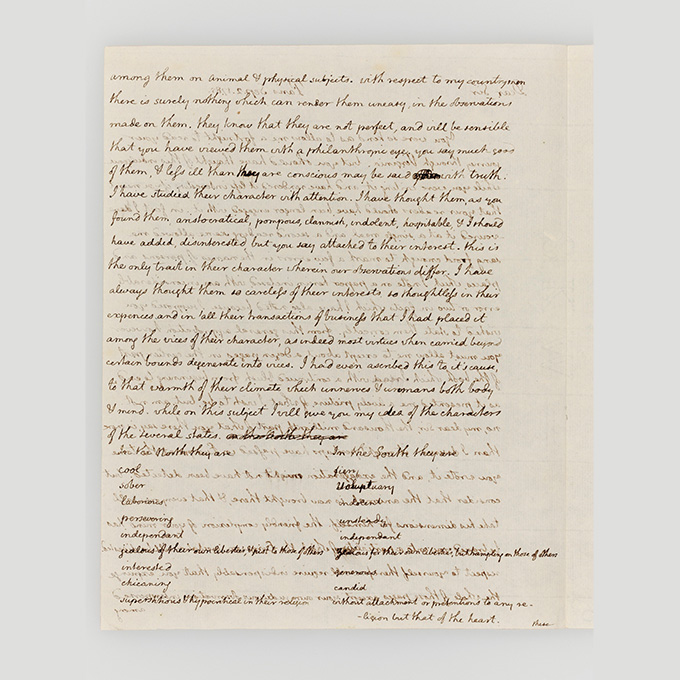 among them on animal & physical subjects. with respect to my countrymen
there is surely nothing which can render them uneasy, in the observations
made on them. they know that they are not perfect, and will be sensible
that you have viewed them with a philanthropic eye. you say much good
of them, & less ill than they are conscious may be said with truth.
I have studied their character with attention. I have thought them, as you
found them, aristocratical, pompous, clannish, indolent, hospitable, & I should
have added, disinterested, but you say attached to their interest. this is
the only trait in their character wherein our observations differ. I have
always thought them so careless of their interests, so thoughtless in their
expences and in all their transactions of business that I had placed it
among the vices of their character, as indeed most virtues when carried beyond
certain bounds degenerate into vices. I had even ascribed this to it's cause,
to that warmth of their climate which unnerves & unmans both body
& mind. while on this subject I will give you my idea of the characters
of the several states. in the North they are
In the North they are In the South they are
cool fiery
sober Voluptuary
laborious indolent
persevering unsteady
independant independant
jealous of their own liberties, & just to those of others zealous for their own liberties, but trampling on those of others
interested generous
chicaning candid
superstitious & hypocritical in their religion without attachment or pretentions to any re-
-ligion but that of the heart.
these